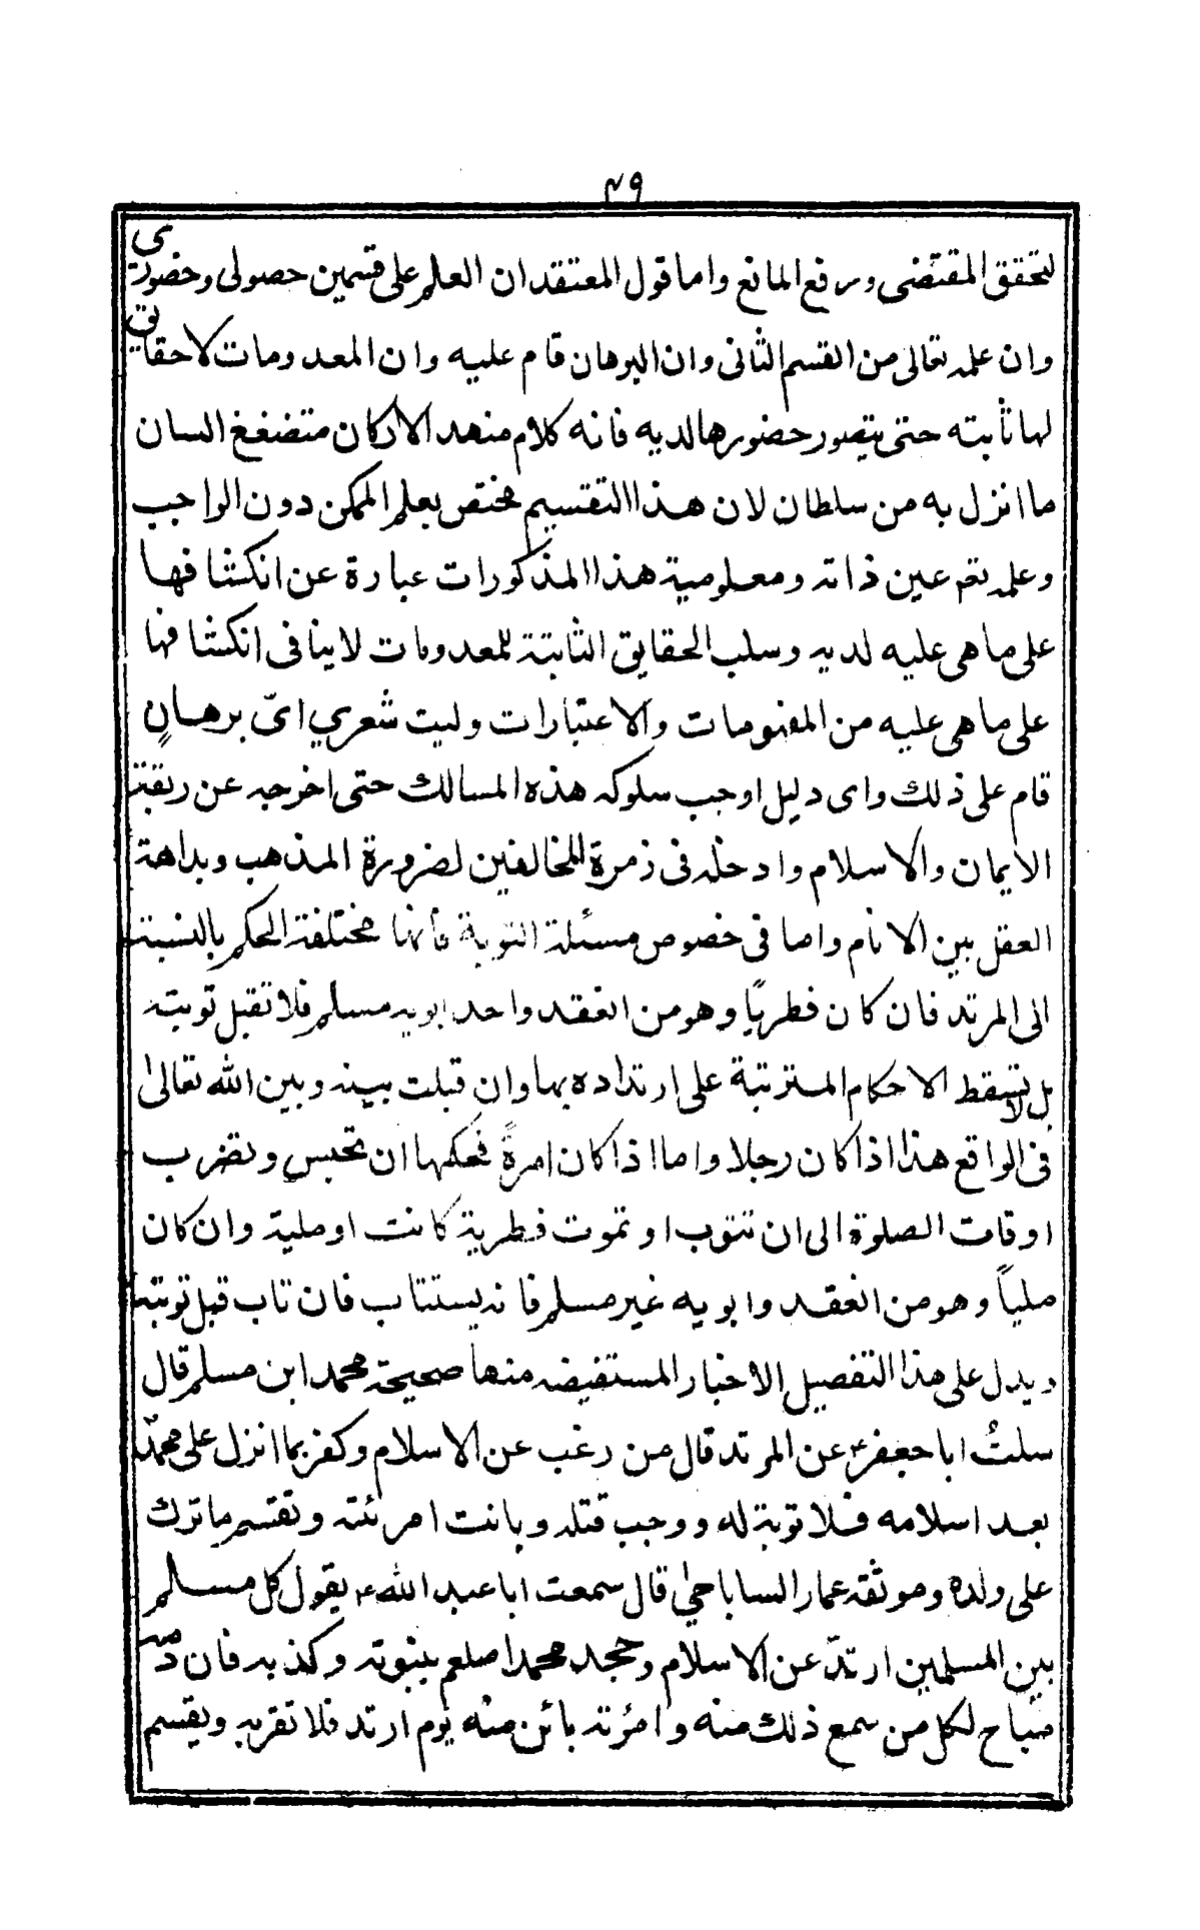 ٤٩
لتحقق المقتضى ورفع المانع واما قول المعتقد ان العلم على قسمين حصولى وحضورى
وان علمه تعالى من القسم الثانى وان البرهان قام عليه وان المعدومات لا حقايق
لها ثابته حتى يتصور حضورها لديه فانه كلام منهد الاركان متضغضغ البيان
ما انزل به من سلطان لان هذا التقسيم مختص بعلم الممكن دون الواجب
وعلمه تعم عين ذاته ومعلومية هذا المذكورات عبارة عن انكشافها
على ما هى عليه لديه وسلب الحقايق الثابتة للمعدومات لاينافى انكشافها
على ما هى عليه من المفهومات والاعتبارات وليت شعري اىّ برهانٍ
قام على ذلك واى دليل اوجب سلوكه هذه المسالك حتى اخرجه عن ربقة
الايمان والاسلام وادخله فى زمرة المخالفين لضرورة المذهب وبداهة
العقل بين الانام واما فى خصوص مسئلة التوبة فانها مختلفة الحكم بالنسبة
الى المرتد فان كان فطريًا وهو من انعقد واحد ابويه مسلم فلا تقبل توبته
بل لا تسقط الاحكام المترتبة على ارتداده بها وان قبلت بينه وبين الله تعالىٰ
فى الواقع هذا اذا كان رجلا واما اذا كان امرةً فحكمها ان تحبس وتضرب
اوقات الصلوة الى ان تتوب او تموت فطرية كانت او ملية وان كان
ملياً وهو من انعقد وابويه غير مسلم فانه يستتاب فان تاب قبل توبته
ويدل على هذا التفصيل الاخبار المستفيضه منها صحيحة محمد ابن مسلم قال
سلتُ ابا جعفرء عن المرتد قال من رغب عن الاسلام وكفر بما انزل على محمّد
بعد اسلامه فلا توبة له ووجب قتله وبانت امرئته وتقسم ما ترك
على ولده وموثقة عمار الساباطى قال سمعت ابا عبد اللهء يقول كل مسلم
بين المسلمين ارتدّ عن الاسلام وجحد محمدا صلعم بنبوته وكذبه فان دمه
مباح لكل من سمع ذلك منه وامرئته بائن منه يوم ارتد فلا تقربه ويقسم